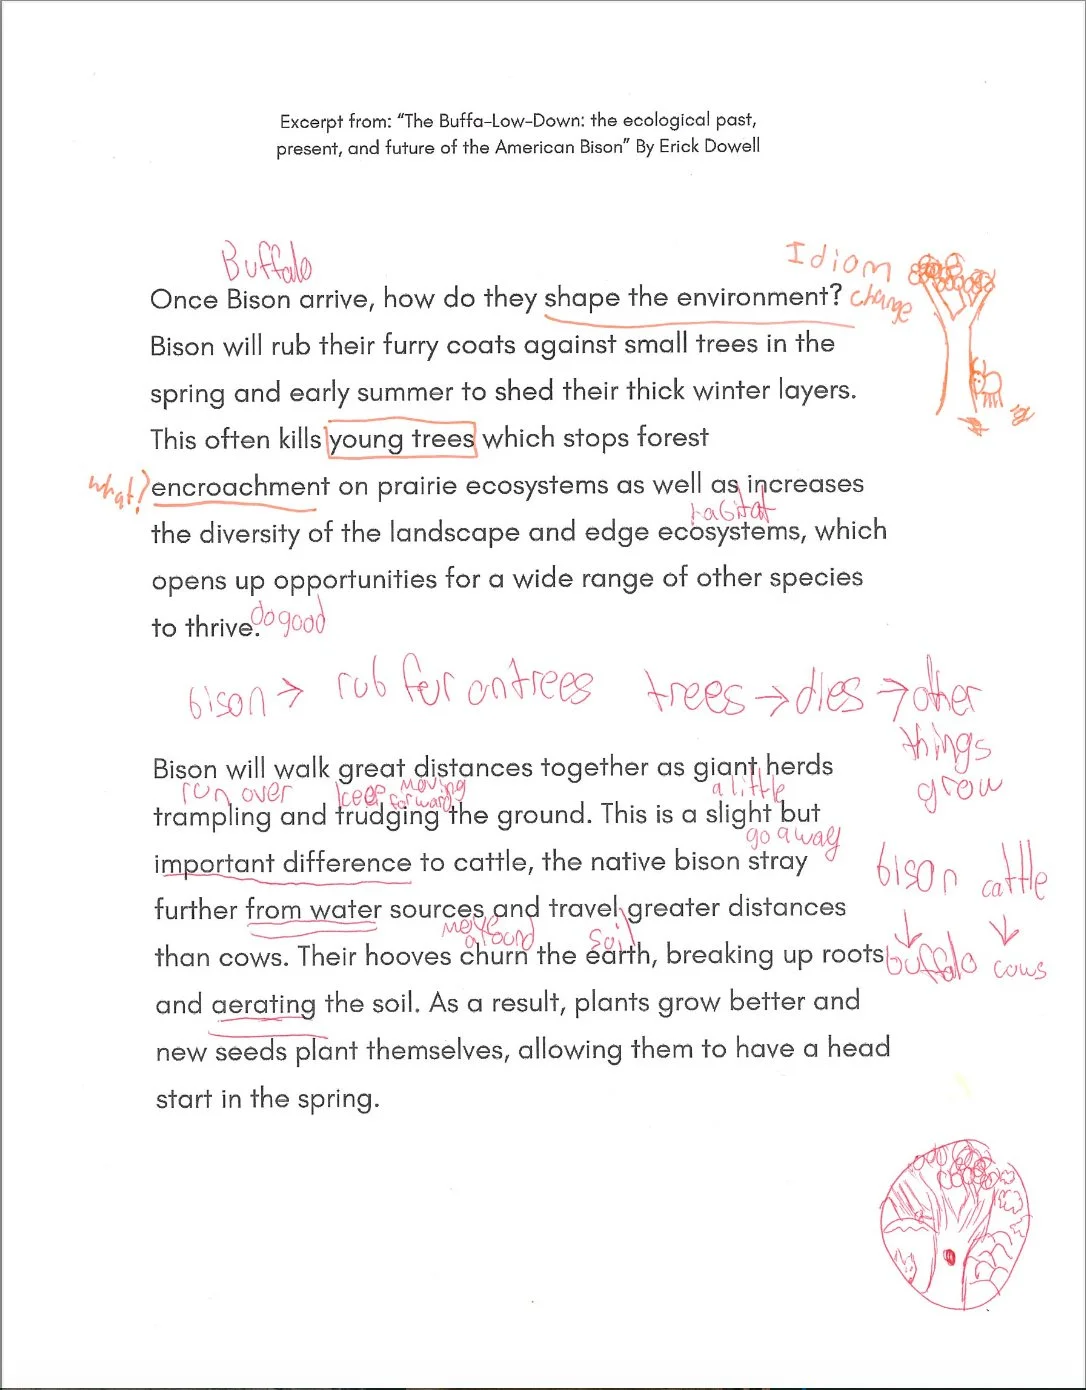 Excerpt from: “The Buffa-Low-Down: the ecological past,
present, and future of the American Bison” By Erick Dowell
Buffalo
Idiom
Once Bison arrive, how do they shape the environment?
change
Bison will rub their furry coats against small trees in the
spring and early summer to shed their thick winter layers.
This often kills young trees which stops forest
what?
encroachment on prairie ecosystems as well as increases
habitat
the diversity of the landscape and edge ecosystems, which
opens up opportunities for a wide range of other species
to thrive.
do good
bison → rub fur on trees
trees → dies → other
things
grow
Bison will walk great distances together as giant herds
run over
keep moving
forward
a little
trampling and trudging the ground. This is a slight but
go away
important difference to cattle, the native bison stray
bison cattle
further from water sources and travel greater distances
move
around
soil
↓ ↓
than cows. Their hooves churn the earth, breaking up roots
buffalo cows
and aerating the soil. As a result, plants grow better and
new seeds plant themselves, allowing them to have a head
start in the spring.